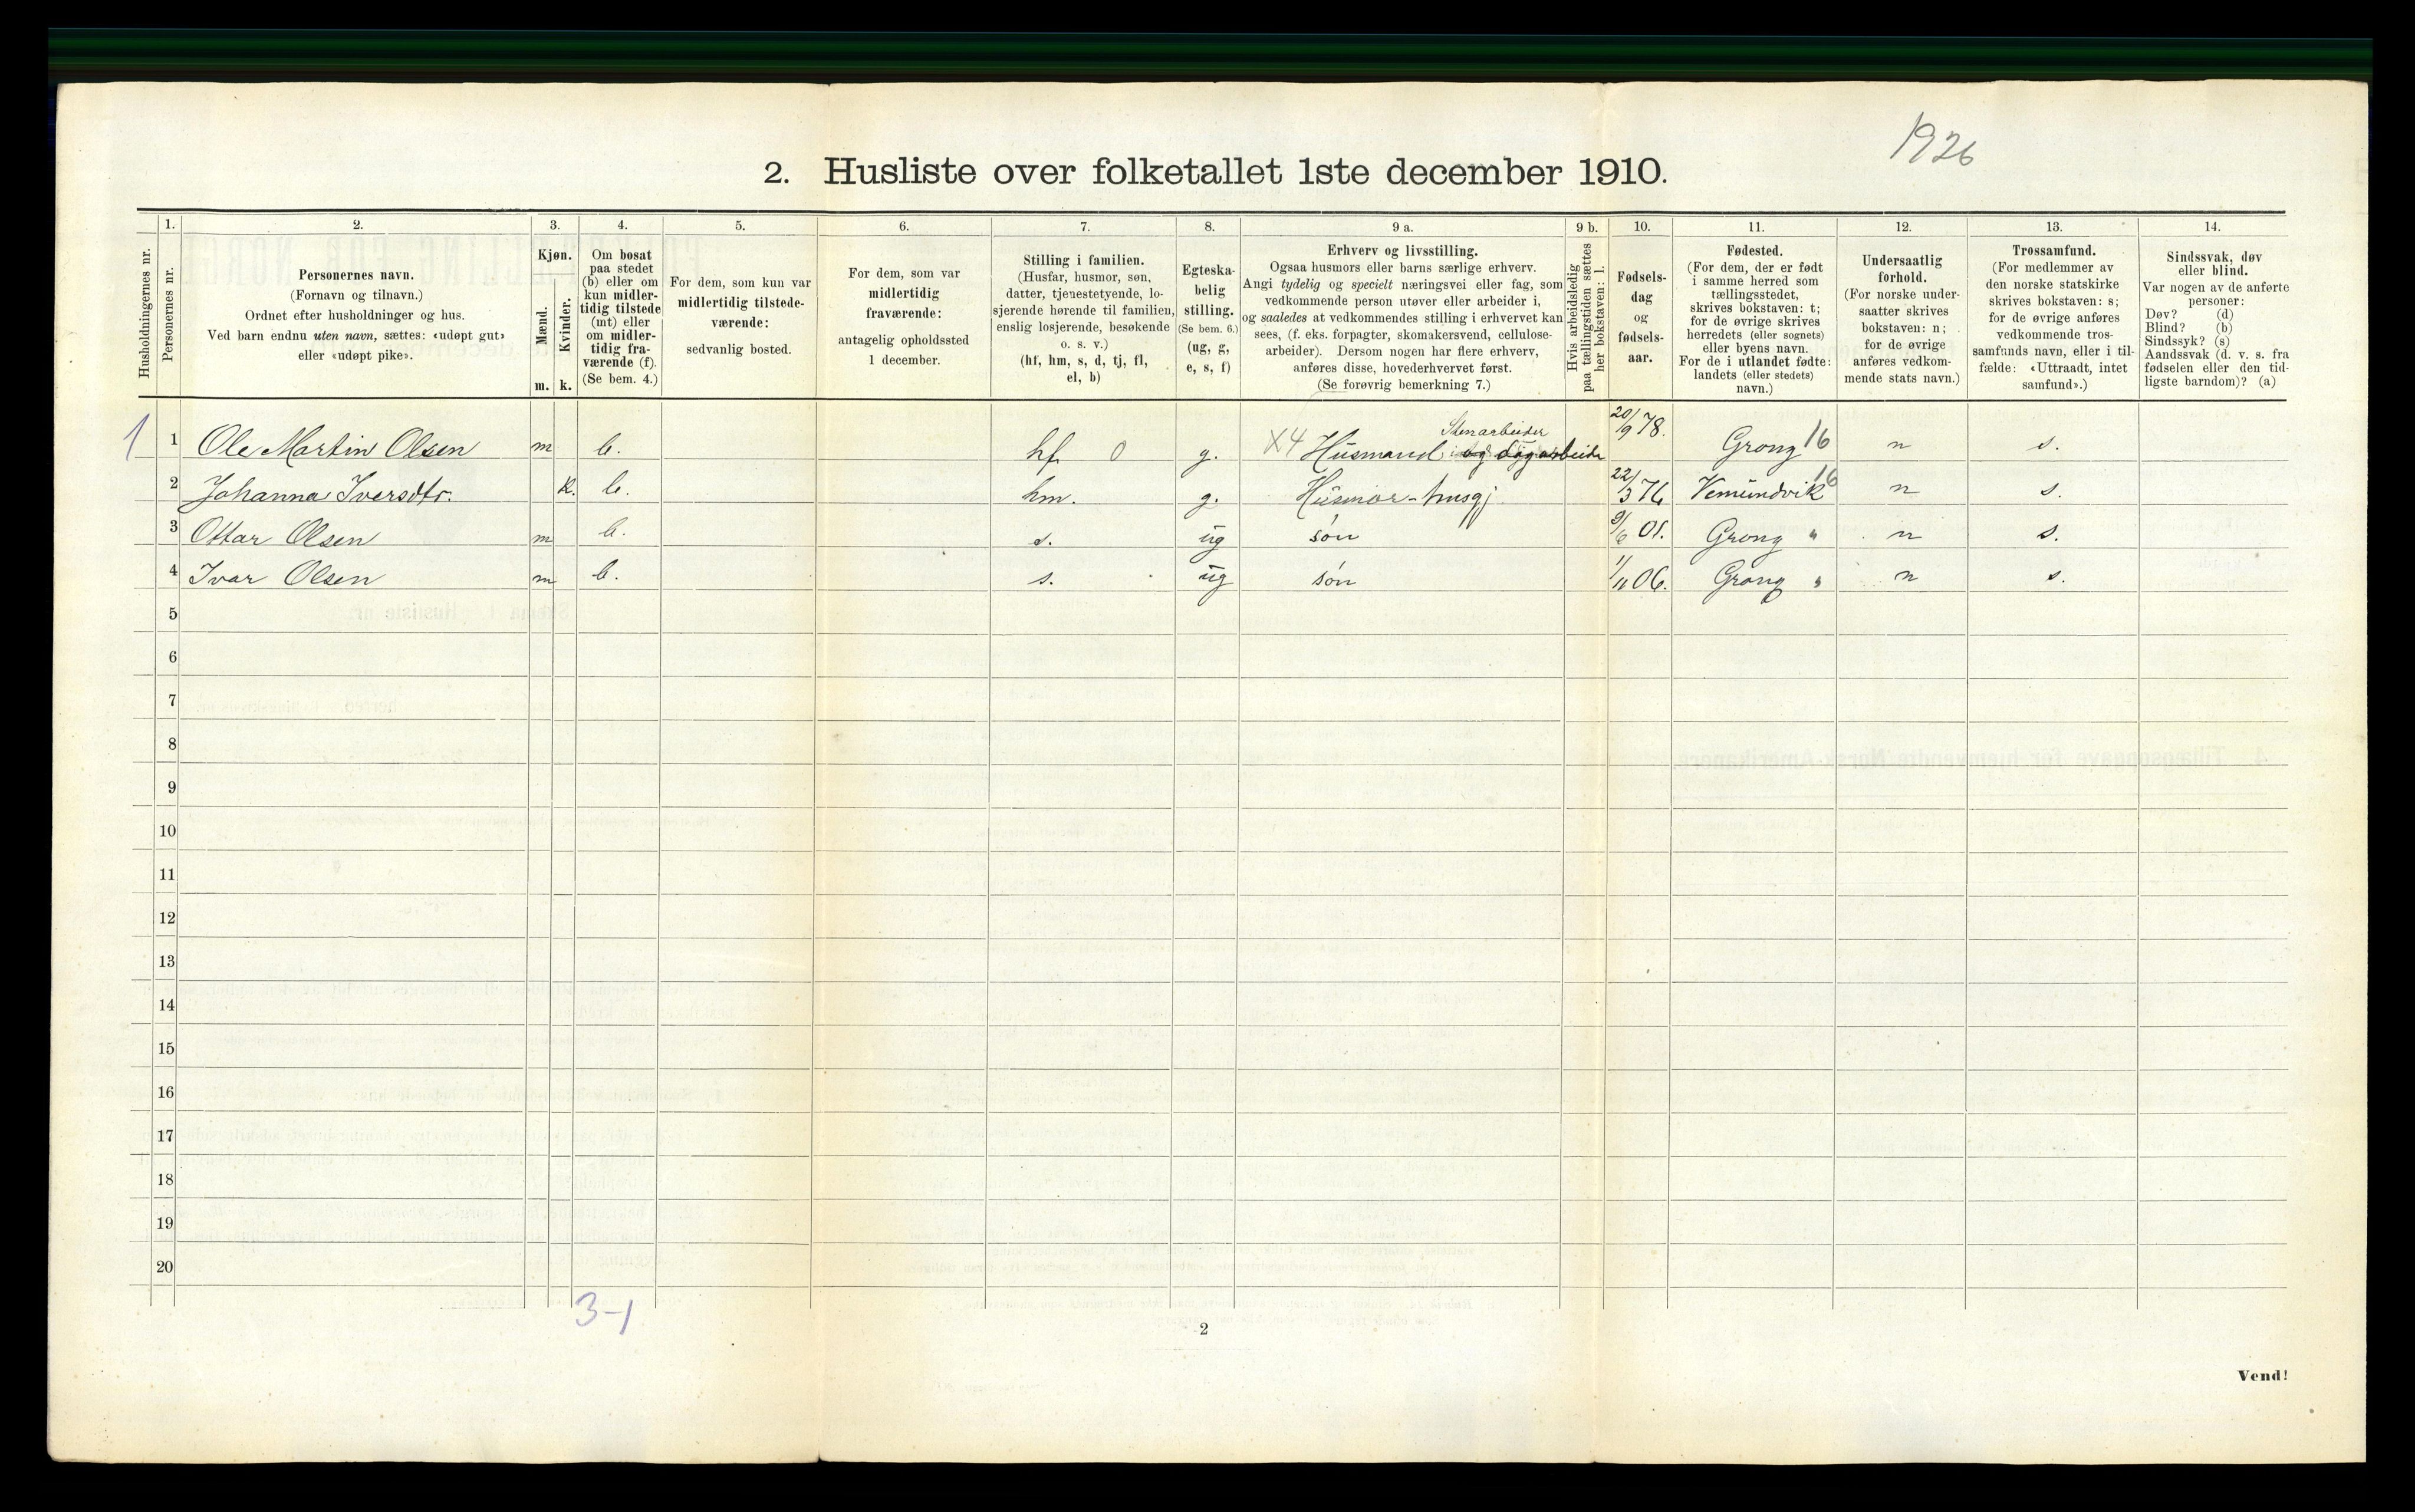 1926
2. Husliste over folketallet 1ste december 1910.
Husholdningernes nr.
1.
Personernes nr.
2.
Personernes navn.
(Fornavn og tilnavn.)
Ordnet efter husholdninger og hus.
Ved barn endnu uten navn, sættes: «udøpt gut»
eller «udøpt pike».
3.
Kjøn.
Mænd.
Kvinder.
m. k.
4.
Om bosat
paa stedet
(b) eller om
kun midler-
tidig tilstede
(mt) eller
om midler-
tidig fra-
værende (f).
(Se bem. 4.)
5.
For dem, som kun var
midlertidig tilstede-
værende:
sedvanlig bosted.
6.
For dem, som var
midlertidig
fraværende:
antagelig opholdssted
1 december.
7.
Stilling i familien.
(Husfar, husmor, søn,
datter, tjenestetyende, lo-
sjerende hørende til familien,
enslig losjerende, besøkende
o. s. v.)
(hf, hm, s, d, tj, fl,
el, b)
8.
Egteska-
belig
stilling.
(Se bem. 6.)
(ug, g,
e, s, f)
9 a.
Erhverv og livsstilling.
Ogsaa husmors eller barns særlige erhverv.
Angi tydelig og specielt næringsvei eller fag, som
vedkommende person utøver eller arbeider i,
og saaledes at vedkommendes stilling i erhvervet kan
sees, (f. eks. forpagter, skomakersvend, cellulose-
arbeider). Dersom nogen har flere erhverv,
anføres disse, hovederhvervet først.
(Se forøvrig bemerkning 7.)
9 b.
Hvis arbeidsledig
paa tællingstiden sættes
her bokstaven: l.
10.
Fødsels-
dag
og
fødsels-
aar.
11.
Fødested.
(For dem, der er født
i samme herred som
tællingsstedet,
skrives bokstaven: t;
for de øvrige skrives
herredets (eller sognets)
eller byens navn.
For de i utlandet fødte:
landets (eller stedets)
navn.)
12.
Undersaatlig
forhold.
(For norske under-
saatter skrives
bokstaven: n;
for de øvrige
anføres vedkom-
mende stats navn.)
13.
Trossamfund.
(For medlemmer av
den norske statskirke
skrives bokstaven: s;
for de øvrige anføres
vedkommende tros-
samfunds navn, eller i til-
fælde: «Uttraadt, intet
samfund».)
14.
Sindssvak, døv
eller blind.
Var nogen av de anførte
personer:
Døv? (d)
Blind? (b)
Sindssyk? (s)
Aandssvak (d. v. s. fra
fødselen eller den tid-
ligste barndom)? (a)
1 1 Ole Martin Olsen m b. hf 0 g. X4 Husmand Stenarbeider og dagarbeide 20/9 78. Grong 16 n s.
2 Johanna Iversdtr. k. b. hm. g. Husmor-husgj 22/3 76 Vemundvik 16 n s.
3 Ottar Olsen m b. s. ug søn 9/6 01. Grong " n s.
4 Ivar Olsen m b. s. ug søn 1/11 06. Grong " n s.
5
6
7
8
9
10
11
12
13
14
15
16
17
18
19
20
3-1
2
Vend!